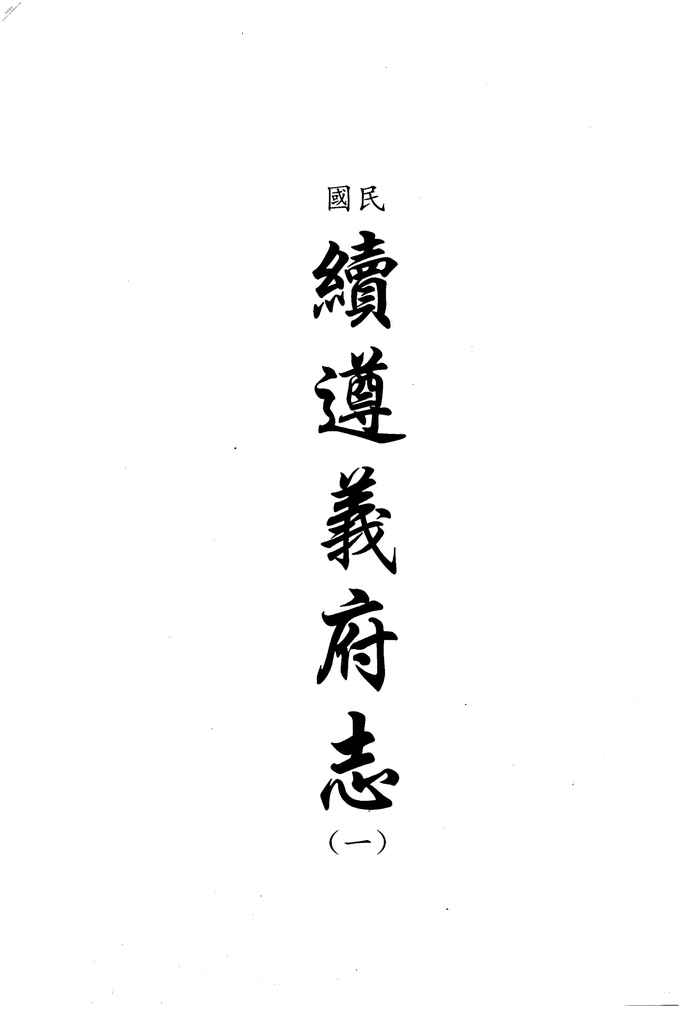 民國
續遵義府志
(一)